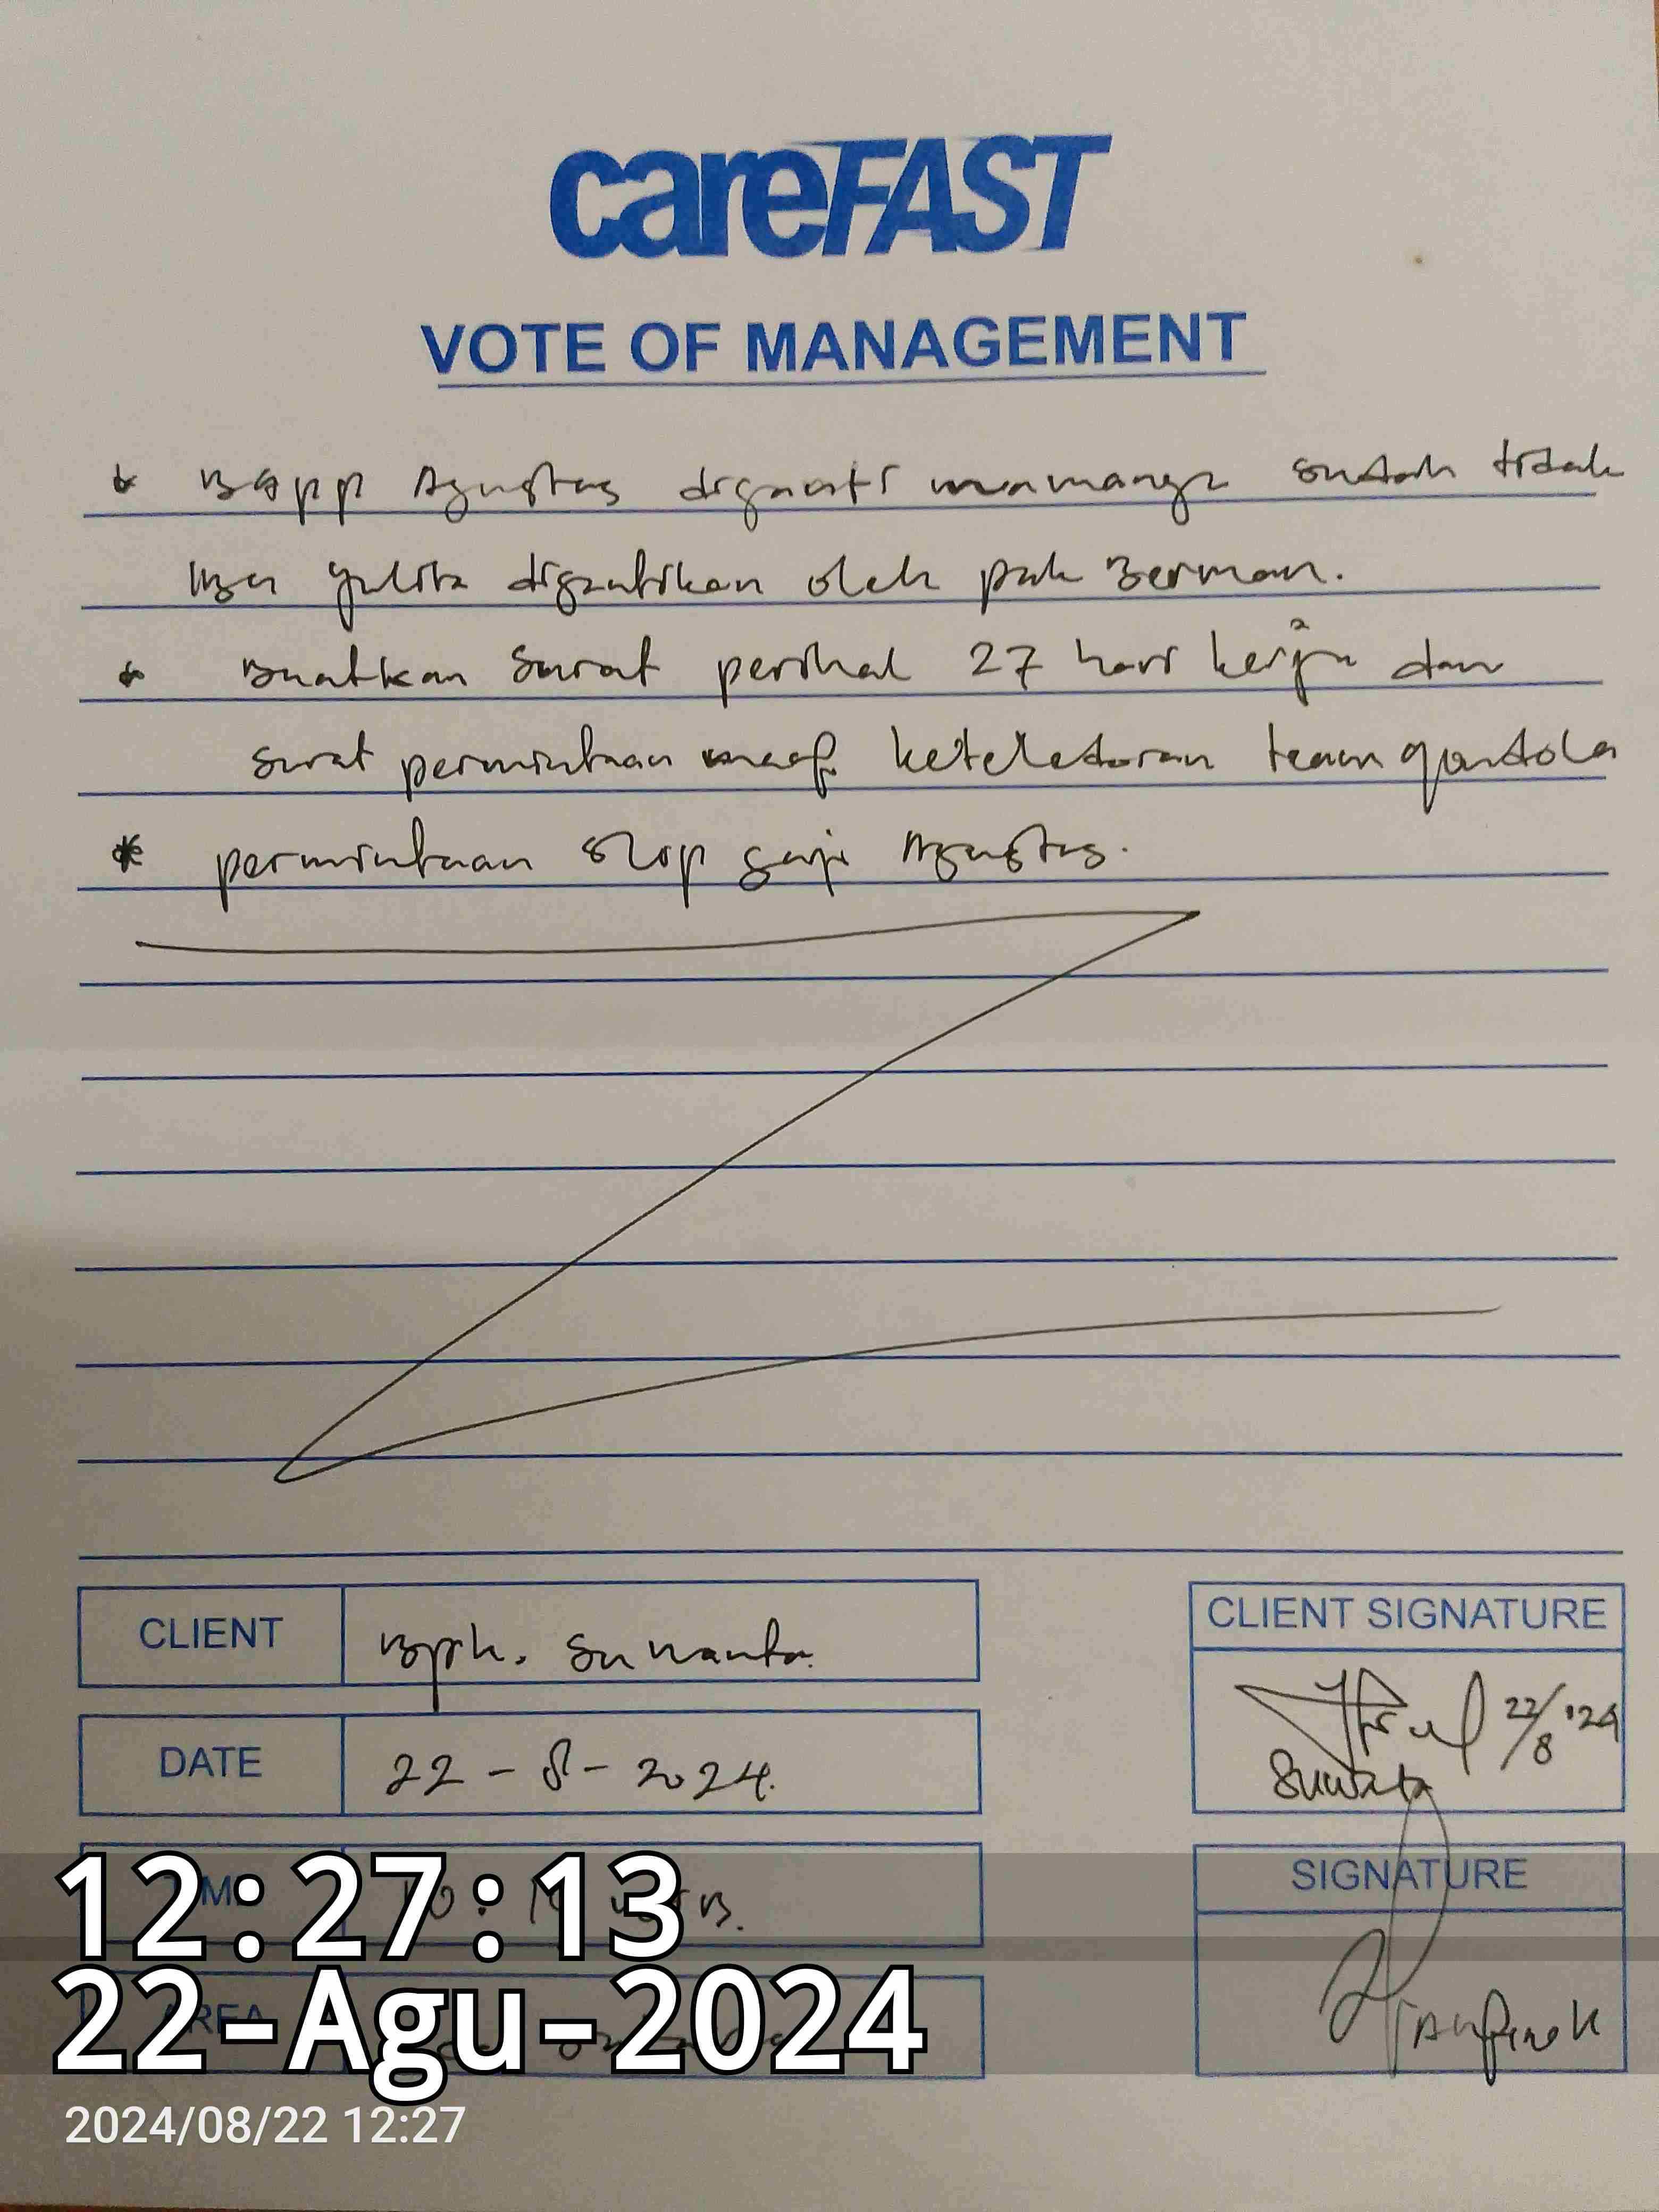 careFAST
VOTE OF MANAGEMENT
* BAPP Agustus diganti namanya sudah tidak
Ibu Yulita digantikan oleh pak Berman.
* Buatkan Surat perihal 27 hari kerja dan
Surat permintaan maaf keteledoran team gondola
* permintaan Slip gaji Agustus.
CLIENT Bpk. Suwanta.
DATE 22-8-2024.
CLIENT SIGNATURE
22/8 '24
Suwanta
SIGNATURE
12:27:13
22-Agu-2024
2024/08/22 12:27